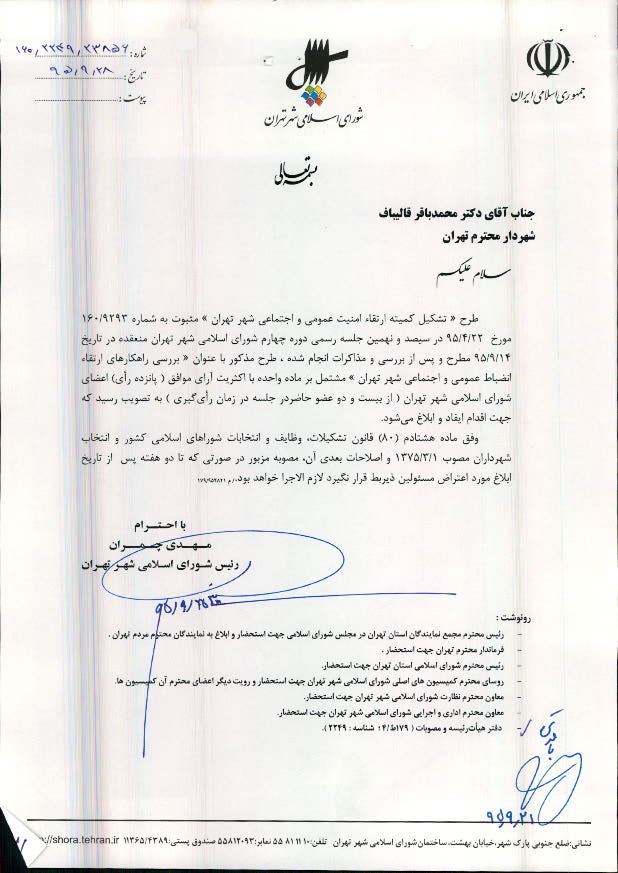 جمهوری اسلامی ایران
شورای اسلامی شهر تهران
شماره: ۱۶۰/۲۲۴۹/۲۳۸۵۶
تاریخ: ۹۵/۹/۲۸
پیوست:
بسمه تعالی
جناب آقای دکتر محمدباقر قالیباف
شهردار محترم تهران
سلام علیکم
طرح « تشکیل کمیته ارتقاء امنیت عمومی و اجتماعی شهر تهران » مثبوت به شماره ۱۶۰/۹۲۹۳
مورخ ۹۵/۴/۲۲ در سیصد و نهمین جلسه رسمی دوره چهارم شورای اسلامی شهر تهران منعقده در تاریخ
۹۵/۹/۱۴ مطرح و پس از بررسی و مذاکرات انجام شده ، طرح مذکور با عنوان « بررسی راهکارهای ارتقاء
انضباط عمومی و اجتماعی شهر تهران » مشتمل بر ماده واحده با اکثریت آرای موافق ( پانزده رأی) اعضای
شورای اسلامی شهر تهران ( از بیست و دو عضو حاضردر جلسه در زمان رأی‌گیری ) به تصویب رسید که
جهت اقدام ایفاد و ابلاغ می‌شود.
وفق ماده هشتادم (۸۰) قانون تشکیلات، وظایف و انتخابات شوراهای اسلامی کشور و انتخاب
شهرداران مصوب ۱۳۷۵/۳/۱ و اصلاحات بعدی آن، مصوبه مزبور در صورتی که تا دو هفته پس از تاریخ
ابلاغ مورد اعتراض مسئولین ذیربط قرار نگیرد لازم الاجرا خواهد بود.
با احترام
مهدی چمران
رئیس شورای اسلامی شهر تهران
رونوشت :
- رئیس محترم مجمع نمایندگان استان تهران در مجلس شورای اسلامی جهت استحضار و ابلاغ به نمایندگان محترم مردم تهران .
- فرماندار محترم تهران جهت استحضار .
- رئیس محترم شورای اسلامی استان تهران جهت استحضار.
- روسای محترم کمیسیون های اصلی شورای اسلامی شهر تهران جهت استحضار و رویت دیگر اعضای محترم آن کمیسیون ها.
- معاون محترم نظارت شورای اسلامی شهر تهران جهت استحضار.
- معاون محترم اداری و اجرایی شورای اسلامی شهر تهران جهت استحضار.
- دفتر هیأت‌رئیسه و مصوبات ( ۱۷۹ط/۴؛ شناسه : ۲۲۴۹).
۹۵/۹/۲۱
نشانی:ضلع جنوبی پارک شهر،خیابان بهشت، ساختمان‌شورای اسلامی شهر تهران تلفن:۱۰ ۱۱ ۸۱ ۵۵ نمابر:۵۵۸۱۲۰۹۳ صندوق پستی:۱۱۳۶۵/۴۳۸۹ //shora.tehran.ir